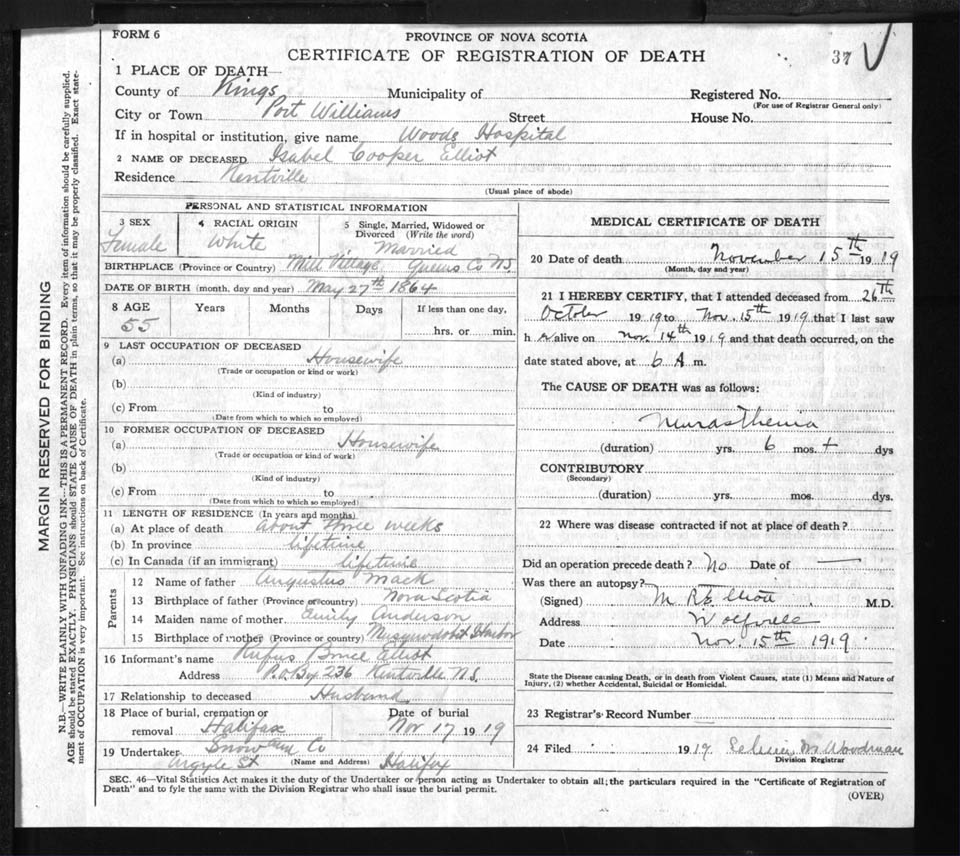 FORM 6
PROVINCE OF NOVA SCOTIA
CERTIFICATE OF REGISTRATION OF DEATH
37
1 PLACE OF DEATH
County of Kings Municipality of Registered No.
(For use of Registrar General only)
City or Town Port Williams Street House No.
If in hospital or institution, give name Woods Hospital
2 NAME OF DECEASED Isabel Cooper Elliot
Residence Kentville
(Usual place of abode)
PERSONAL AND STATISTICAL INFORMATION
3 SEX 4 RACIAL ORIGIN 5 Single, Married, Widowed or
Divorced (Write the word)
Female White Married
BIRTHPLACE (Province or Country) Mill Village Queens Co NS.
DATE OF BIRTH (month, day and year) May 27th 1864
8 AGE Years Months Days If less than one day,
55 hrs. or min.
9 LAST OCCUPATION OF DECEASED
(a) Housewife
(Trade or occupation or kind or work)
(b)
(Kind of industry)
(c) From to
(Date from which to which so employed)
10 FORMER OCCUPATION OF DECEASED
(a) Housewife
(Trade or occupation or kind of work)
(b)
(Kind of industry)
(c) From to
(Date from which to which so employed)
11 LENGTH OF RESIDENCE (In years and months)
(a) At place of death about three weeks
(b) In province lifetime
(c) In Canada (if an immigrant) lifetime
Parents
12 Name of father Augustus Mack
13 Birthplace of father (Province or country) Nova Scotia
14 Maiden name of mother Emily Anderson
15 Birthplace of mother (Province or country) Harbor
16 Informant's name Rufus Bruce Elliot
Address P.O. Bx 236 Kentville N.S.
17 Relationship to deceased Husband
18 Place of burial, cremation or Date of burial
removal Halifax Nov 17 1919
19 Undertaker Snow and Co
(Name and Address)
Argyle St Halifax
MEDICAL CERTIFICATE OF DEATH
20 Date of death November 15th 1919
(Month, day and year)
21 I HEREBY CERTIFY, that I attended deceased from 26th
October 1919 to Nov. 15th 1919 that I last saw
h er alive on Nov. 14th 1919 and that death occurred, on the
date stated above, at 6 A m.
The CAUSE OF DEATH was as follows:
Neurasthenia
(duration) yrs. 6 mos. + dys
CONTRIBUTORY
(Secondary)
(duration) yrs. mos. dys.
22 Where was disease contracted if not at place of death?
Did an operation precede death? No Date of —
Was there an autopsy?
(Signed) M R Elliott M.D.
Address Wolfville
Date Nov. 15th 1919
State the Disease causing Death, or in death from Violent Causes, state (1) Means and Nature of
Injury, (2) whether Accidental, Suicidal or Homicidal.
23 Registrar's Record Number
24 Filed 1919. M. Woodman
Division Registrar
SEC. 46—Vital Statistics Act makes it the duty of the Undertaker or person acting as Undertaker to obtain all the particulars required in the "Certificate of Registration of
Death" and to fyle the same with the Division Registrar who shall issue the burial permit.
(OVER)
MARGIN RESERVED FOR BINDING
N.B.—WRITE PLAINLY WITH UNFADING INK—THIS IS A PERMANENT RECORD. Every item of information should be carefully supplied.
AGE should be stated EXACTLY. PHYSICIANS should STATE CAUSE OF DEATH in plain terms, so that it may be properly classified. Exact state-
ment of OCCUPATION is very important. See instructions on back of Certificate.